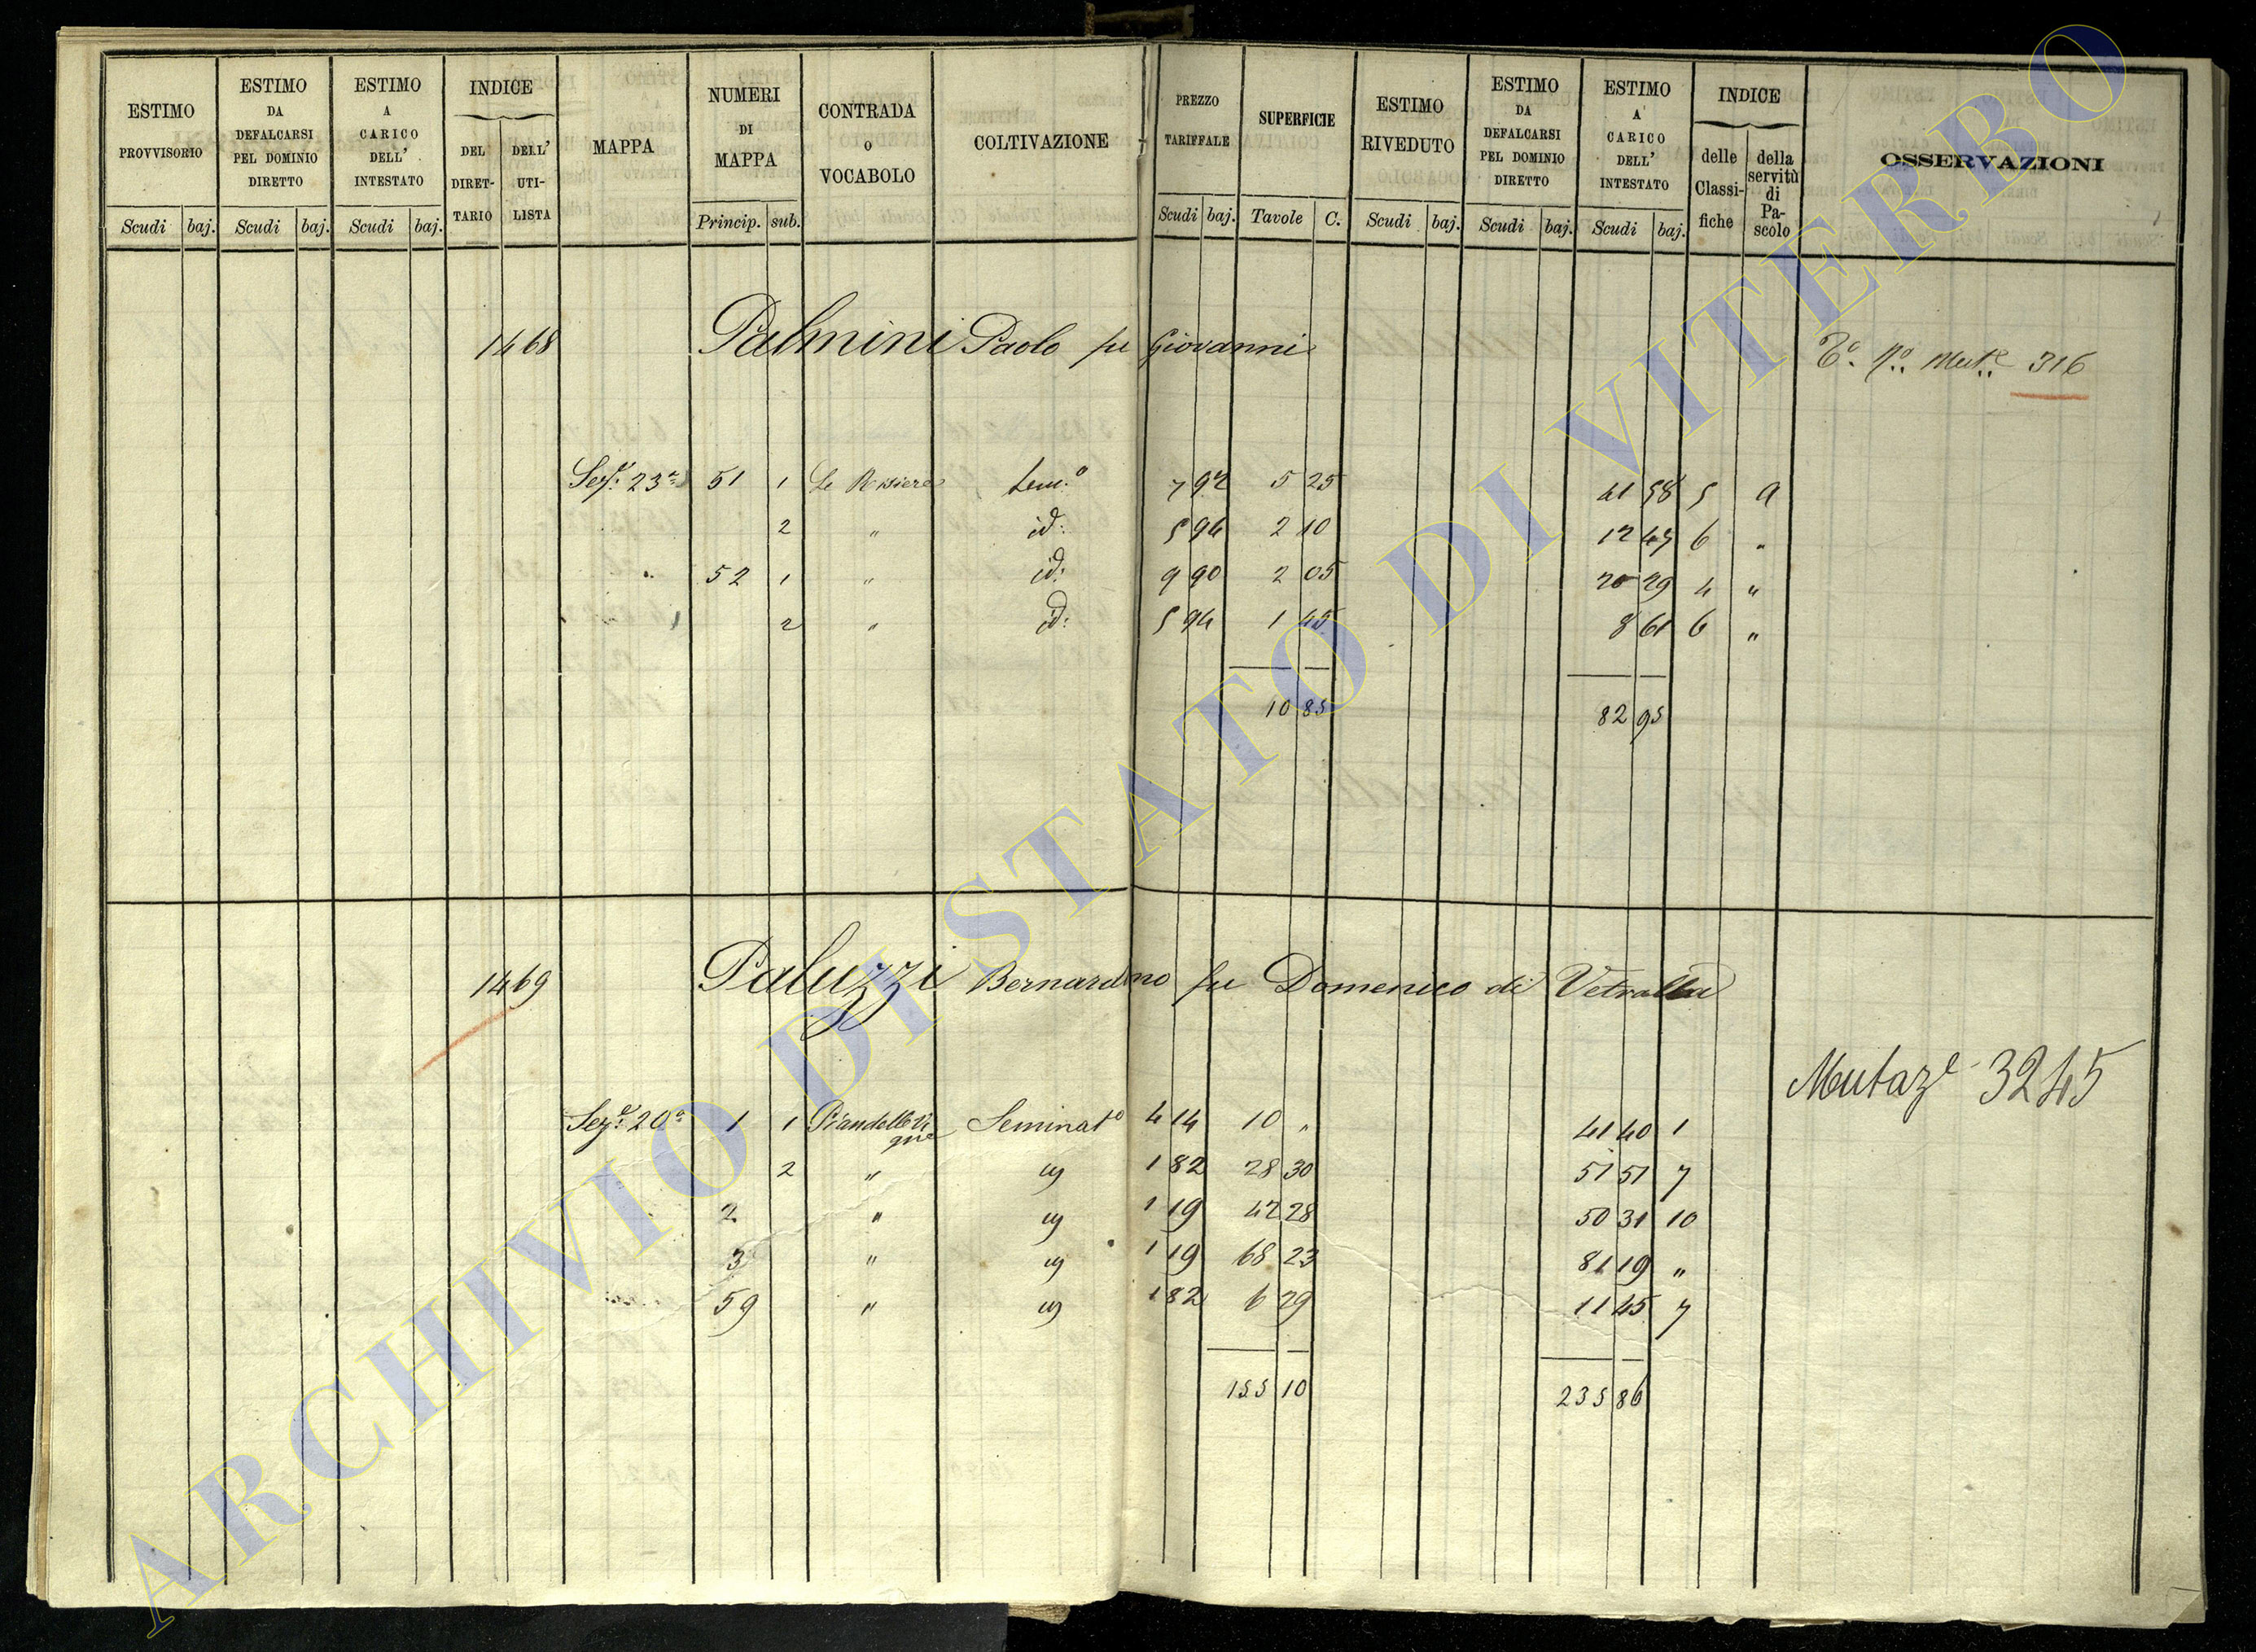 ESTIMO PROVVISORIO
ESTIMO DA DEFALCARSI PEL DOMINIO DIRETTO
ESTIMO A CARICO DELL' INTESTATO
INDICE
DEL DIRET-TARIO
DELL' UTI-LISTA
MAPPA
NUMERI DI MAPPA
CONTRADA O VOCABOLO
COLTIVAZIONE
PREZZO TARIFFALE
SUPERFICIE
ESTIMO RIVEDUTO
ESTIMO DA DEFALCARSI PEL DOMINIO DIRETTO
ESTIMO A CARICO DELL' INTESTATO
INDICE
delle Classi-fiche
della servitù di Pa-scolo
OSSERVAZIONI
Scudi baj. Scudi baj. Scudi baj. Princip. sub. Scudi baj. Tavole C. Scudi baj. Scudi baj. Scudi baj.
1468 Palmini Paolo fu Giovanni
316
23a 51 1 Le 7 92 5 25 41 58 5 a
2 " id: 5 94 2 10 12 47 6 "
" 52 1 " id: 9 90 2 05 20 29 4 "
2 " id: 5 94 1 45 8 61 6 "
10 85 82 95
1469 Paluzzi Bernardino fu Domenico di Vetralla
Mutaze 3245
20a 1 1 Seminato 4 14 10 " 41 40 1
2 " 1 82 28 30 51 51 7
2 " 1 19 42 28 50 31 10
3 " 1 19 68 23 81 19 "
59 " 1 82 6 29 11 45 7
155 10 235 86
ARCHIVIO DI STATO DI VITERBO